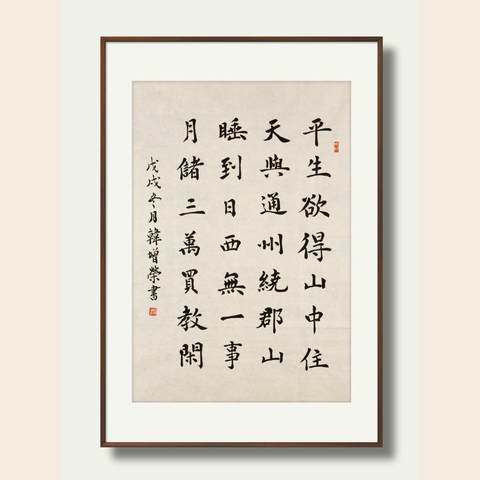 平生欲得山中住
天與通州繞郡山
睡到日西無一事
月儲三萬買教閑
戊戌冬月韓增榮書